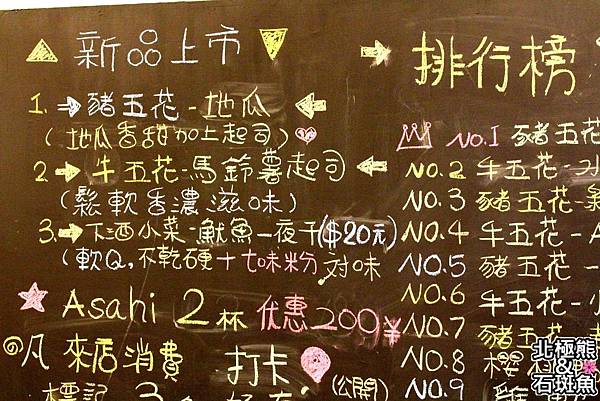 新品上市
1. 豬五花-地瓜
(地瓜香甜加上起司)
2. 牛五花-馬鈴薯起司
(鬆軟香濃滋味)
3. 下酒小菜-魷魚一夜干($20元)
(軟Q,不乾硬+七味粉 対味
Asahi 2杯 优惠200¥
凡來店消費 打卡
標記3 (公開)
排行榜
No.1 豬五花
NO.2 牛五花-
NO.3 豬五花-
NO.4 牛五花-A
NO.5 豬五花-
NO.6 牛五花-小
NO.7 豬五花
NO.8 櫻
NO.9 雞
北極熊
&
石斑魚